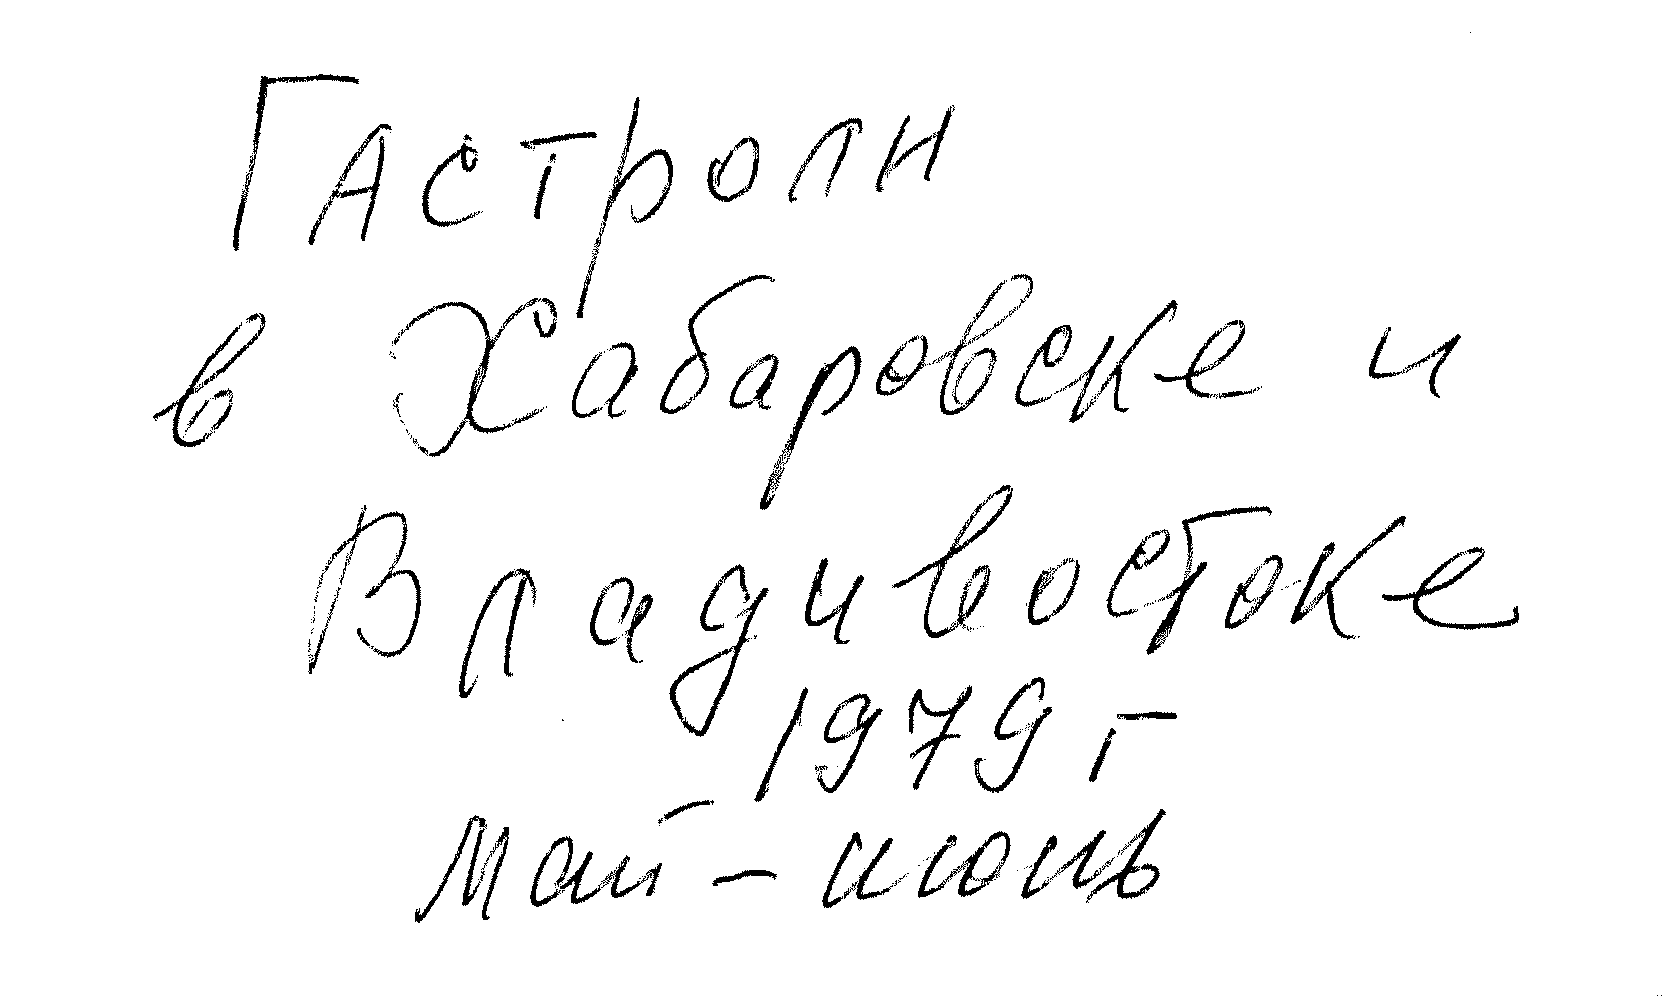 Гастроли
в Хабаровске и
Владивостоке
1979 г
май - июнь